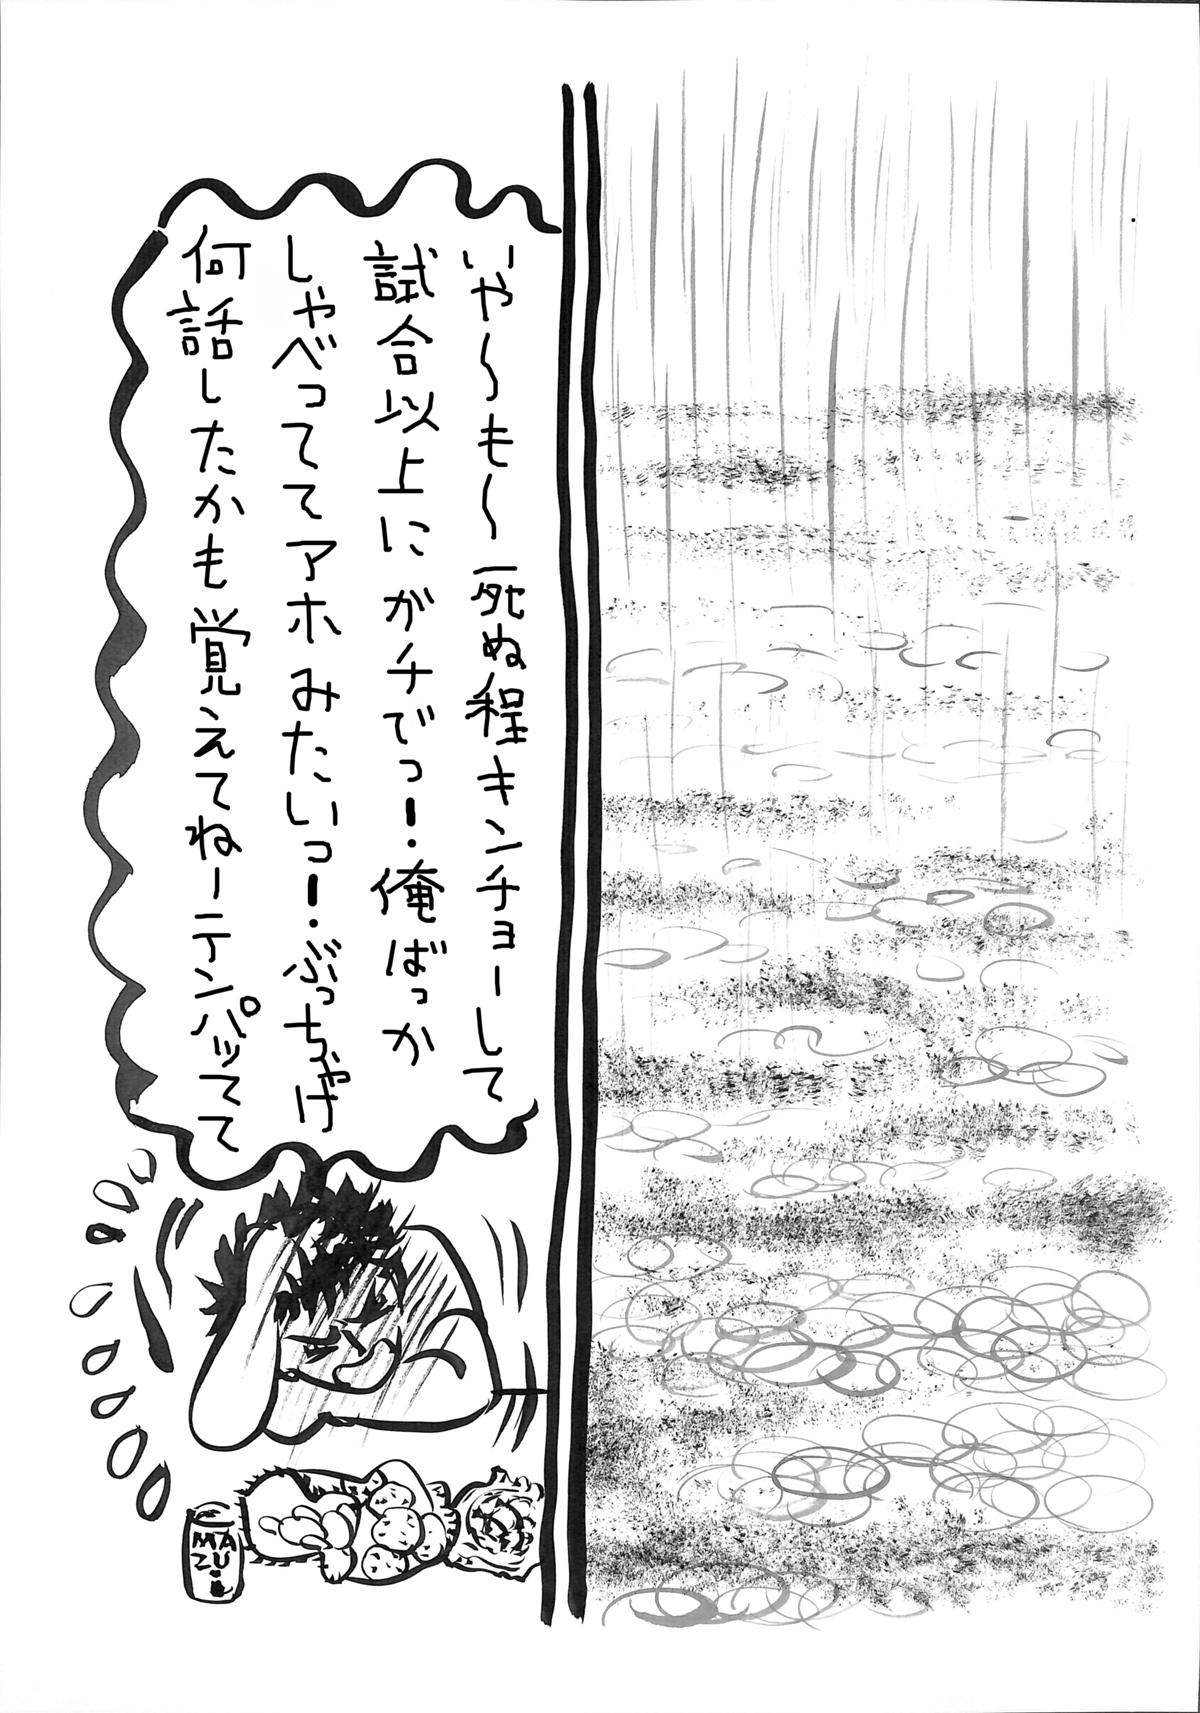 いや〜も〜死ぬ程キンチョーして
試合以上にガチでっ！俺ばっか
しゃべっててアホみたいっ！ぶっちゃけ
何話したかも覚えてねーテンパッてて
MA
ZU!